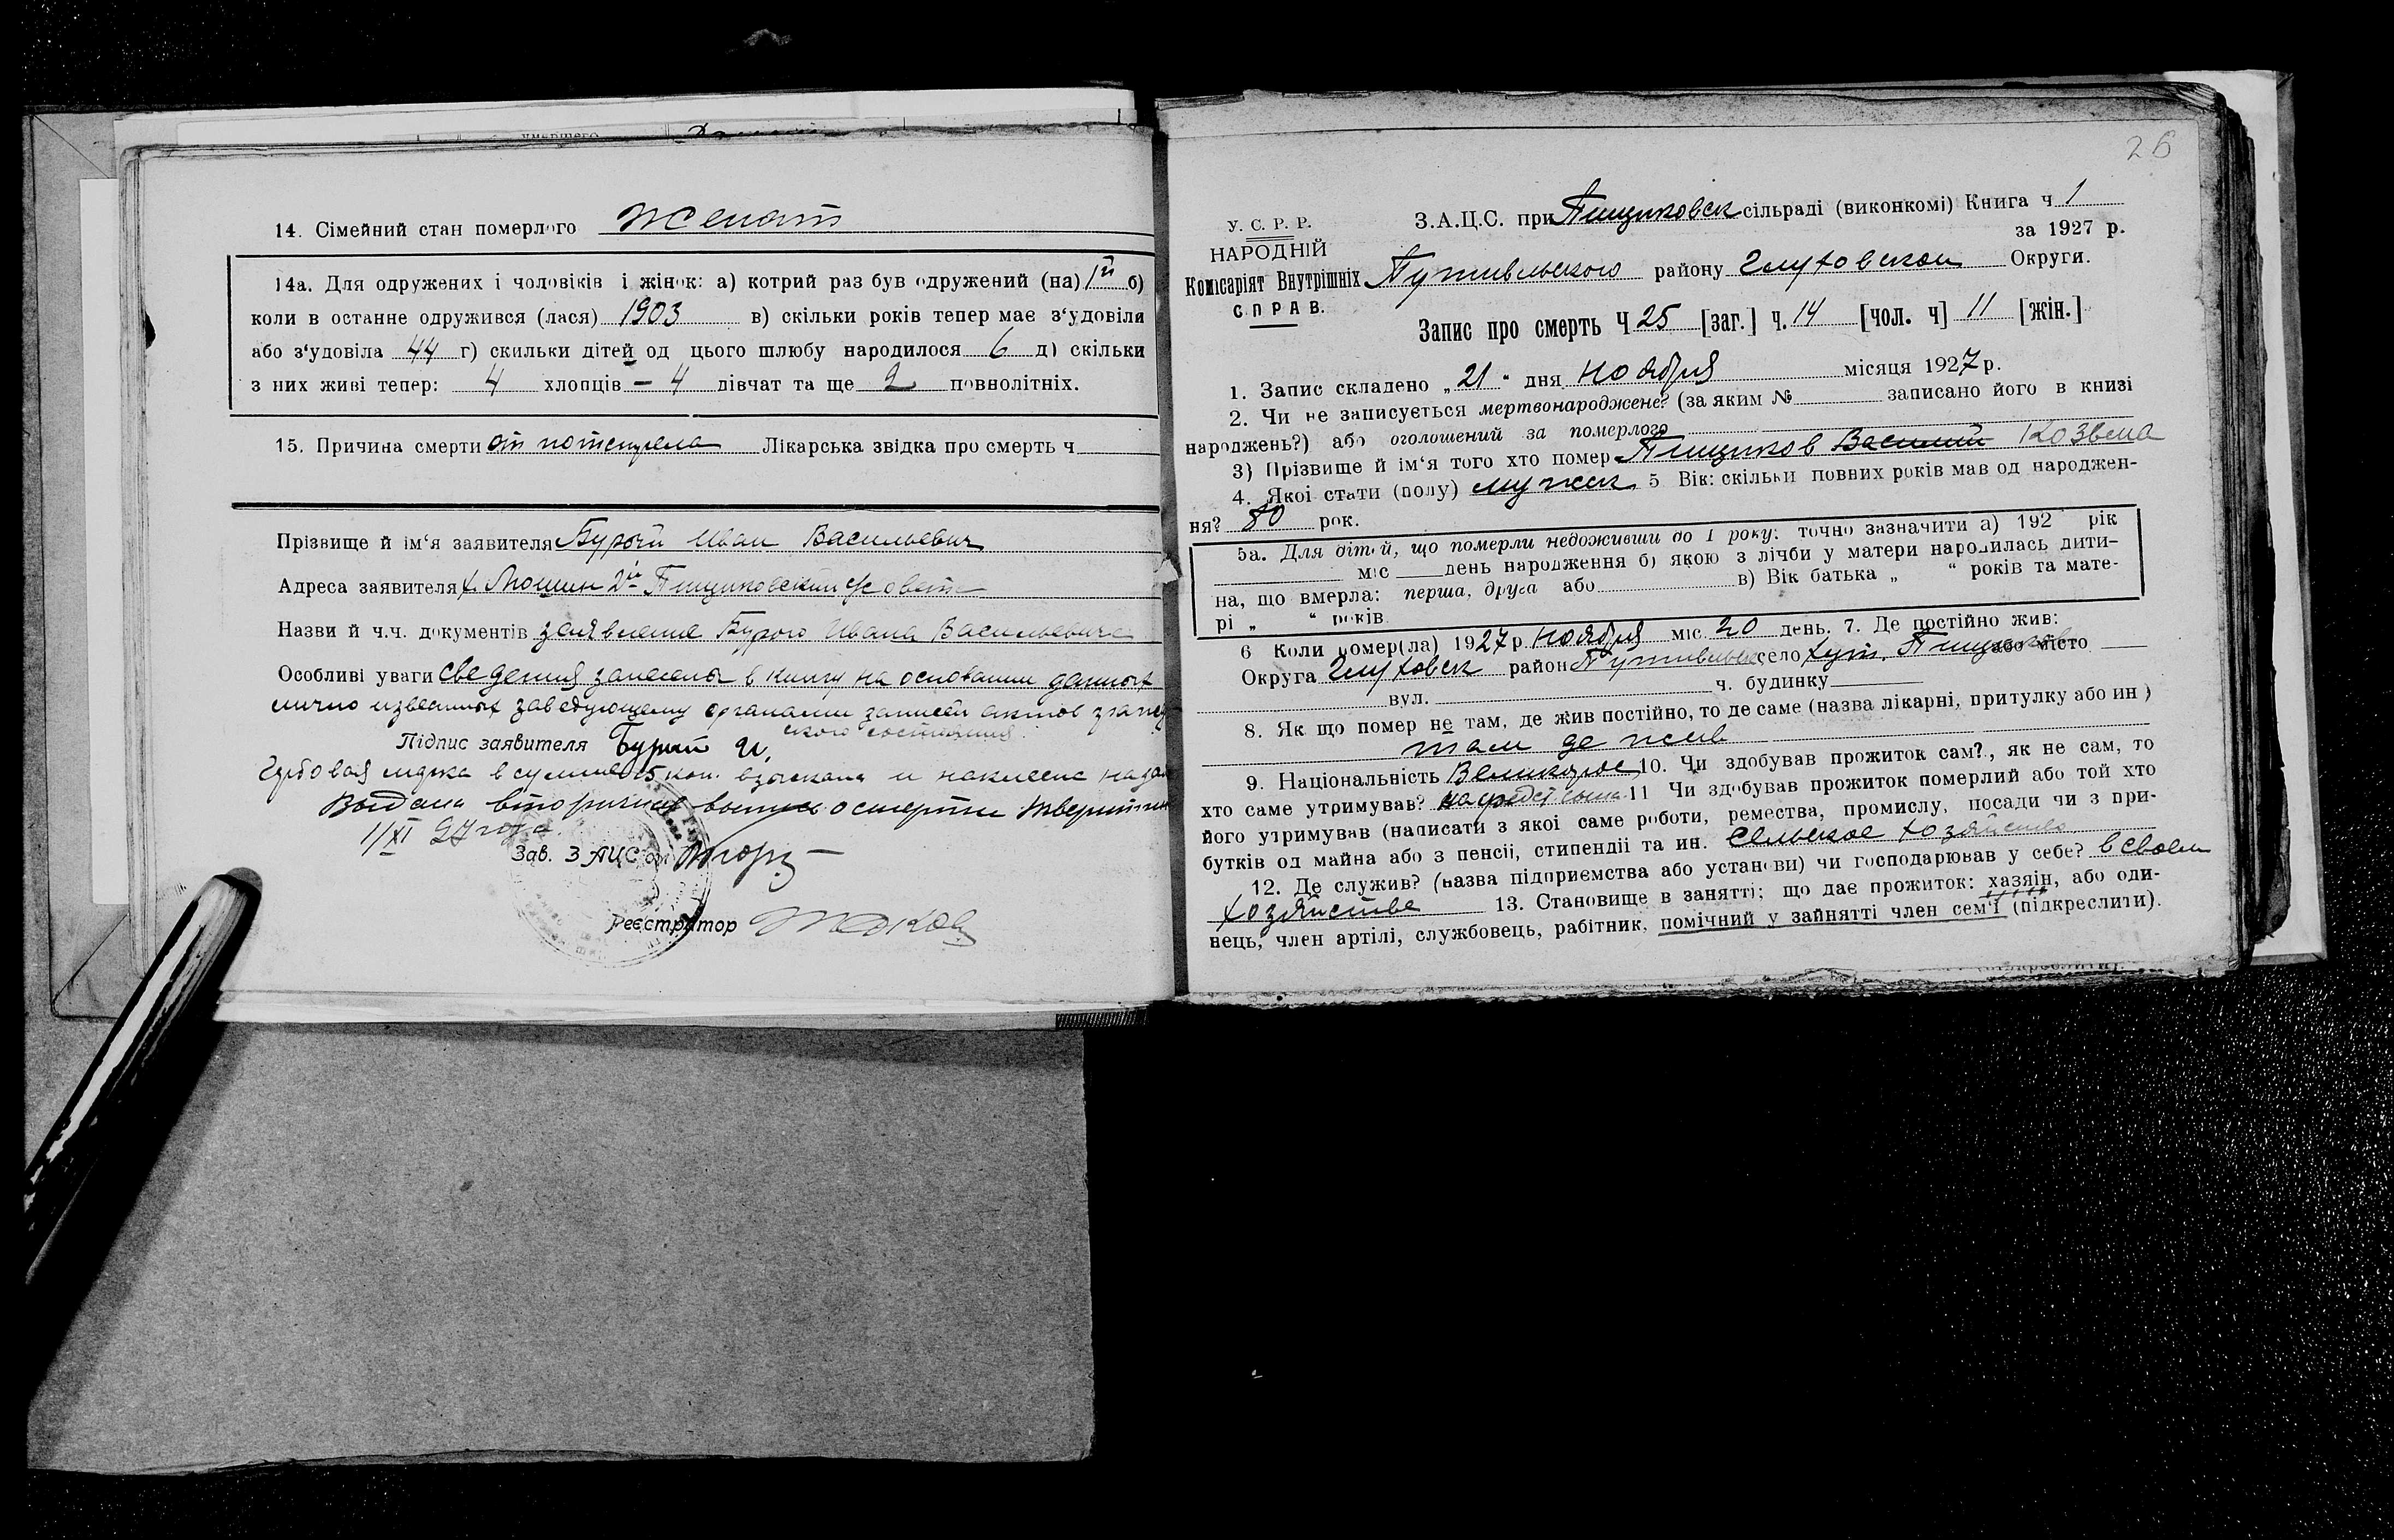 14. Сімейний стан померлого Женат
14а. Для одружених і чоловіків і жінок: а) котрий раз був одружений (на) 1й б)
коли в останне одружився (лася) 1903 в) скільки років тепер має з‘удовіля
або з‘удовіла 44 г) скильки дітей од цього шлюбу народилося 6 д) скільки
з них живі тепер: 4 хлопців — 4 дівчат та ще 2 повнолітніх.
15. Причина смерти от Лікарська звідка про смерть ч
Прізвище й ім‘я заявителя Бурый Иван Васильевич
Адреса заявителя х. 2й Пищиковский с/совета
Назви й ч.ч. документів заявление Бурого Ивана Васильевича
Особливі уваги Сведения занесены в книгу на основании данных
лично известных заведующему органами записи актов граждан
ского состояния.
Підпис заявителя Бурый И.
Гербовая марка в сумме 15 коп. взыскана и наклеена на
Выдана вторичная выпись о смерти
1/XI 27 года
Зав. З АЦС‘ом
Реєстратор
26
У. С. Р. Р.
НАРОДНІЙ
Комісаріят Внутрішніх
СПРАВ.
З.А.Ц.С. при Пищиковск сільраді (виконкомі) Книга ч 1
за 1927 р.
Путивльского району Глуховской Округи.
Запис про смерть Ч 25 [заг.] ч. 14 [чол. ч] 11 [жін.]
1. Запис складено „21“ дня ноября місяця 1927 р.
2. Чи не записується мертвонароджене? (за яким № записано його в книзі
народжень?) або оголошений за померлого
3) Прізвище й ім‘я того хто помер Пищиков Василий
4. Якоі стати (полу) мужск. 5 Вік: скільки повних років мав од народжен-
ня? 80 рок.
5а. Для дітей, що померли недоживши до 1 року: точно зазначити а) 192 рік
міс день народження б) якою з лічби у матери народилась дити-
на, що вмерла: перша, друга або в) Вік батька „ “ років та мате-
рі „ “ років
6 Коли помер(ла) 1927 р. ноября міс. 20 день. 7. Де постійно жив:
Округа Глуховск район Путивльск село хут. Пищиков або місто
вул. ч. будинку
8. Як що помер не там, де жив постійно, то де саме (назва лікарні, притулку або ин)
там де жив
9. Національність Великорос 10. Чи здобував прожиток сам?, як не сам, то
хто саме утримував? на средст сына 11 Чи здобував прожиток померлий або той хто
його утримував (написати з якоі саме роботи, ремества, промислу, посади чи з при-
бутків од майна або з пенсіі, стипендіі та ин. Сельское хозяйство
12. Де служив? (назва підприємства або установи) чи господарював у себе? в своем
хозяйстве 13. Становище в занятті; що дає прожиток: хазяін, або оди-
нець, член артілі, службовець, рабітник, помічний у зайнятті член сем‘ї (підкреслити).